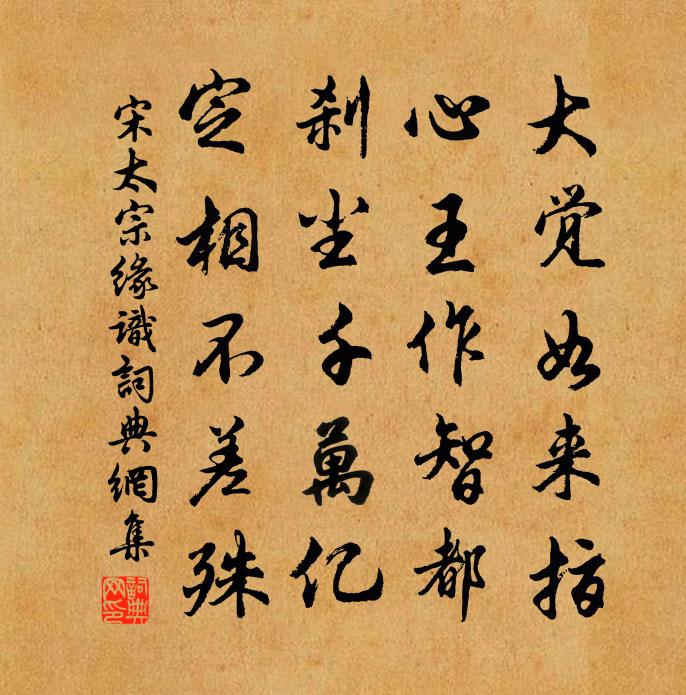 大觉如来指
心王作智都
刹尘千萬亿
定相不差殊
宋太宗缘識詞典網集
詞典网印